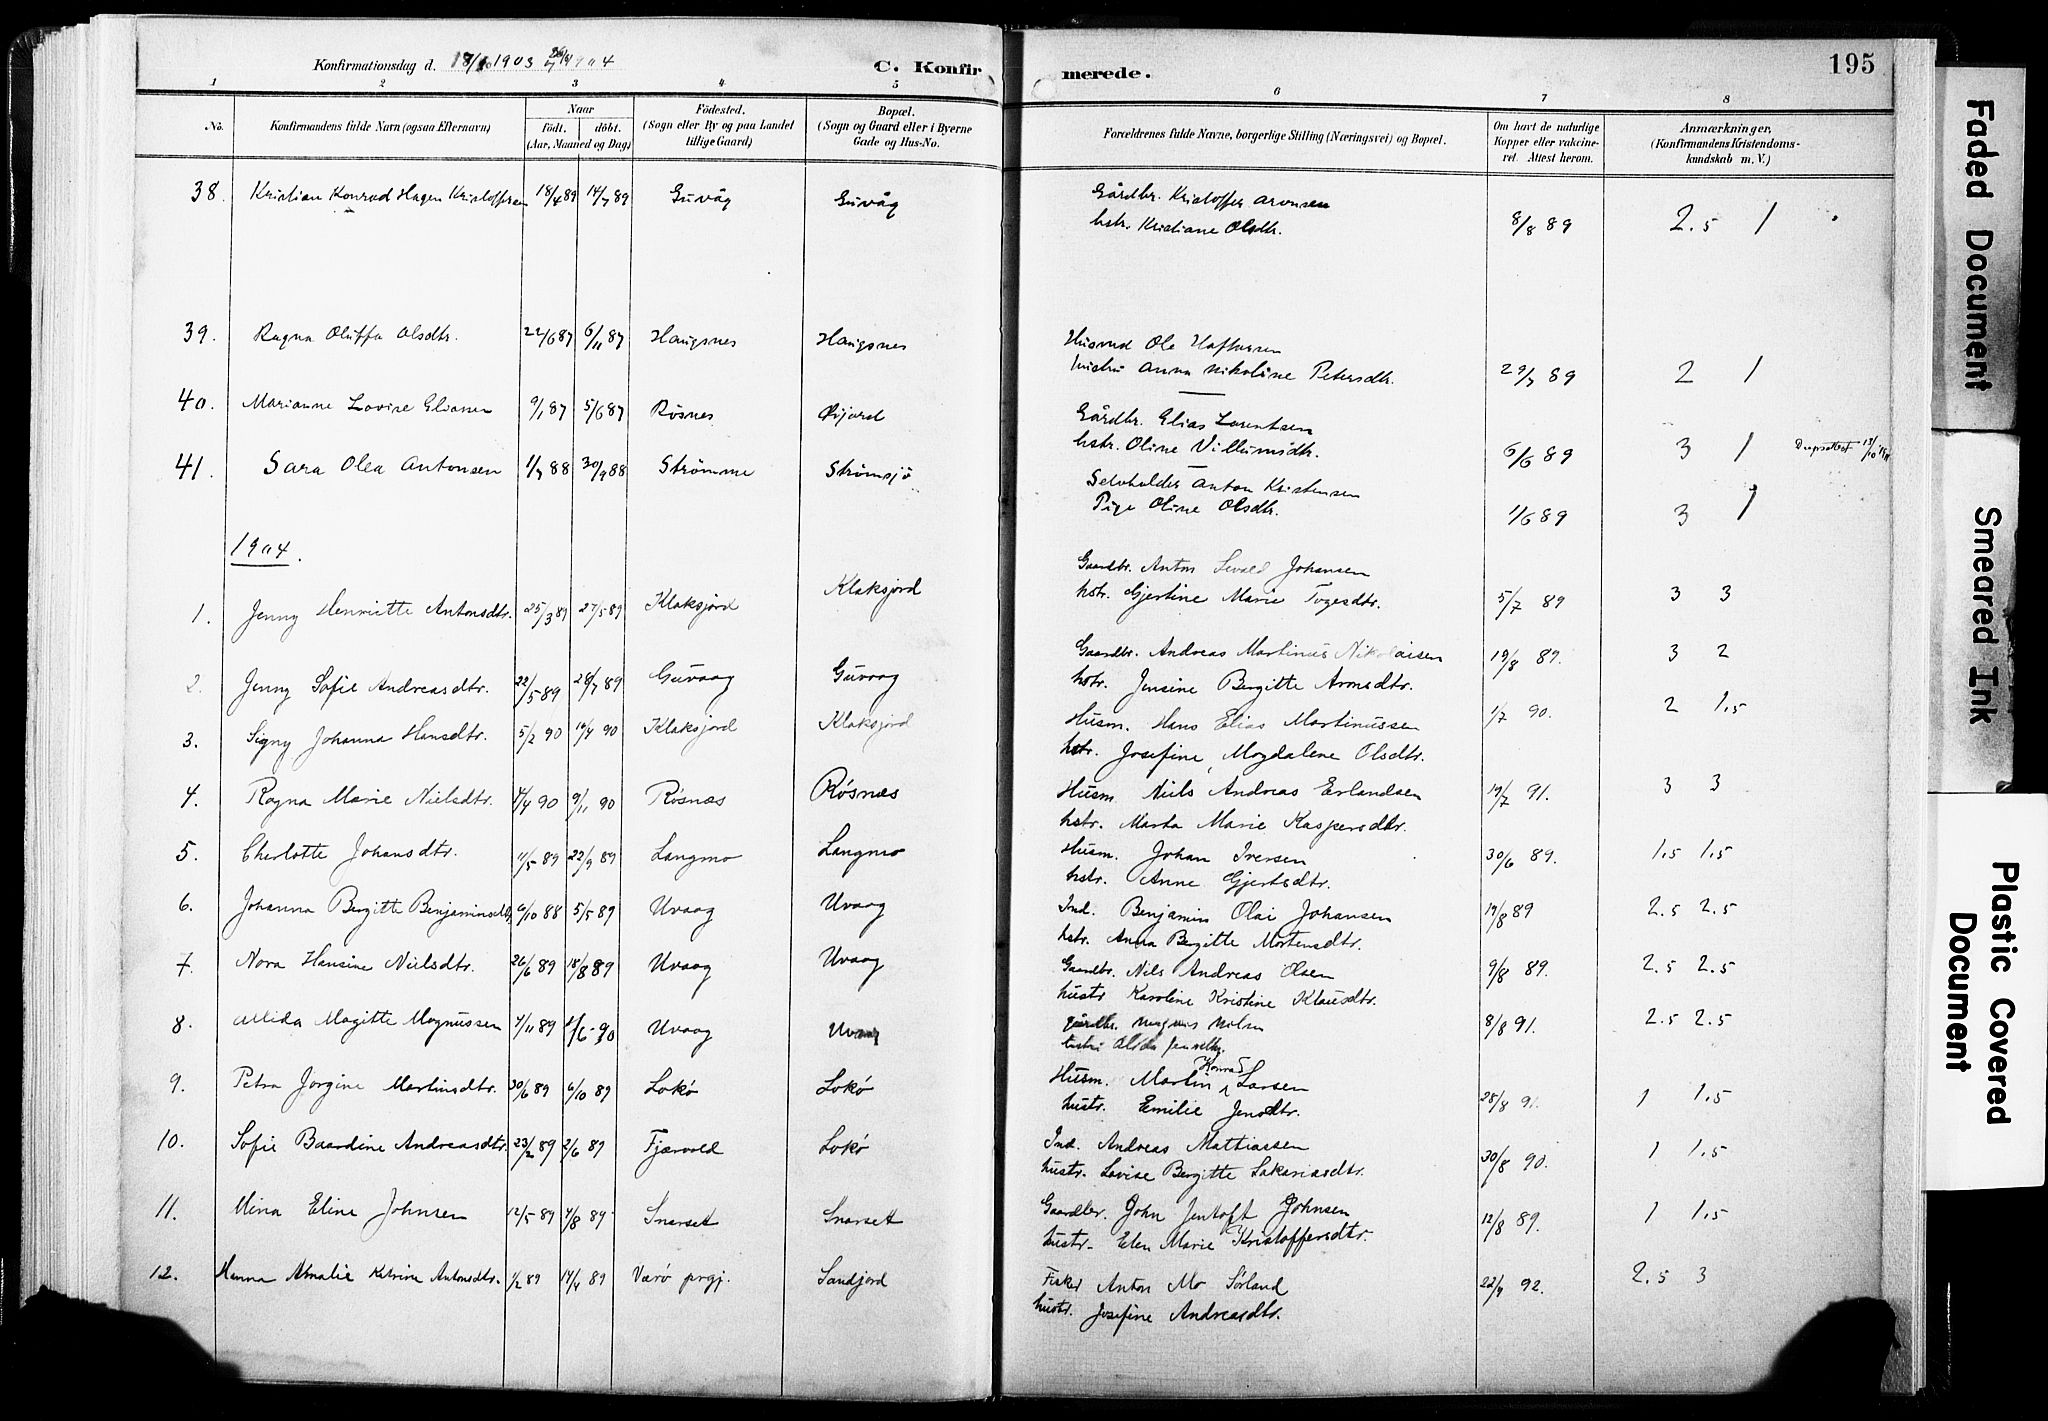 Konfirmationsdag d. 18/10 1903 1904 C. Konfirmerede. 195
1 2 3 4 5 6 7 8
No. Konfirmandens fulde Navn (ogsaa Efternavn) Naar födt. döbt. (Aar, Maaned og Dag) Födested. (Sogn eller By og paa Landet tillige Gaard) Bopæl. (Sogn og Gaard eller i Byerne Gade og Hus-No. Forældrenes fulde Navne, borgerlige Stilling (Næringsvei) og Bopæl. Om havt de naturlige Kopper eller vakcineret. Attest herom. Anmærkninger, (Konfirmandens Kristendomskundskab m. V.)
38. Kristian Konrad Hagen Kristoffersen 18/4 89 14/7 89 Guvåg Guvåg Gårdbr. Kristoffer Aronsen
hstr. Kristiane Olsdtr. 8/8 89 2.5 1
39. Ragna Oluffa Olsdtr. 22/6 87 6/11 87 Haugsnes Haugsnes Husmd Ole
hustru Anna Nikoline Petersdtr. 29/7 89 2 1
40. Marianne Lovise 9/1 87 5/6 87 Røsnes Øijord Gårdbr. Elias Lorentsen
hstr. Oline Villumsdtr. 6/6 89 3 1
41. Sara Olea Antonsen 1/7 88 30/9 88 Strømme Strømsjö Selvholder Anton Kristensen
Pige Oline Olsdtr. 1/6 89 3 1
1904.
1. Jenny Henriette Antonsdtr. 25/3 89 27/5 89 Klaksjord Klaksjord Gaardbr. Anton Sevald Johansen
hstr. Gjertine Marie Togesdtr. 5/7 89 3 3
2. Jenny Sofie Andreasdtr. 22/5 89 28/7 89 Guvaag Guvaag Gaardbr. Andreas Martinus Nikolaisen
hstr. Jensine Bergitte Aronsdtr. 19/8 89. 3 2
3. Signy Johanna Hansdtr. 5/2 90 90 Klaksjord Klaksjord Husm. Hans Elias Martinussen
hstr. Josefine Magdalene Olsdtr. 1/7 90. 2 1.5
4. Ragna Marie Nielsdtr. 4/4 90 9/11 90 Røsnæs Røsnæs Husm. Niels Andreas Erlandsen
hstr. Marta Marie Kaspersdtr. 19/7 91. 3 3
5. Charlotte Johansdtr. 11/5 89 22/9 89 Langmo Langmo Husm. Johan Iversen
hstr. Anne Gjertsdtr. 30/6 89. 1.5 1.5
6. Johanna Bergitte Benjaminsdtr. 6/10 88 5/5 89 Uvaag Uvaag Ind. Benjamin Olai Johansen
hstr. Anna Bergitte Mortensdtr. 19/8 89 2.5 2.5
7. Nora Hansine Nielsdtr. 26/6 89 18/8 89 Uvaag Uvaag Gaardbr. Nils Andreas Olsen
hustr Karoline Kristine Klausdtr. 9/8 89. 2.5 2.5
8. Alida Magitte Magnussen 4/11 89 Uvaag Uvaag gårdbr. Magnus Nilsen
hustru Alida 8/8 91. 2.5 2.5
9. Petra Jørgine Martinsdtr. 30/6 89 6/10 89 Lokø Lokø Husm. Martin Konrad Larsen
hustr. Emilie Jensdtr. 28/8 91. 1 1.5
10. Sofie Baardine Andreasdtr. 23/2 89 2/6 89 Fjærvold Lokø Ind. Andreas Mattiassen
hustr. Lovise Bergitte Sakariasdtr. 30/8 90. 1 1.5
11. Mina Eline Johnsen 12/5 89 4/8 89 Snarset Snarset Gaardbr. John Jentoft Johnsen
hustr. Elen Marie Kristoffersdtr. 12/8 89. 1 1.5
12. Hanna Amalie Katrine Antonsdtr. 1/2 89 14/4 89 Værø prgj. Sandjord Fisker Anton Mo Sørland
hustr. Josefine Andreasdtr. 22/7 92. 2.5 3
Faded Document
Smeared Ink
Plastic Covered Document